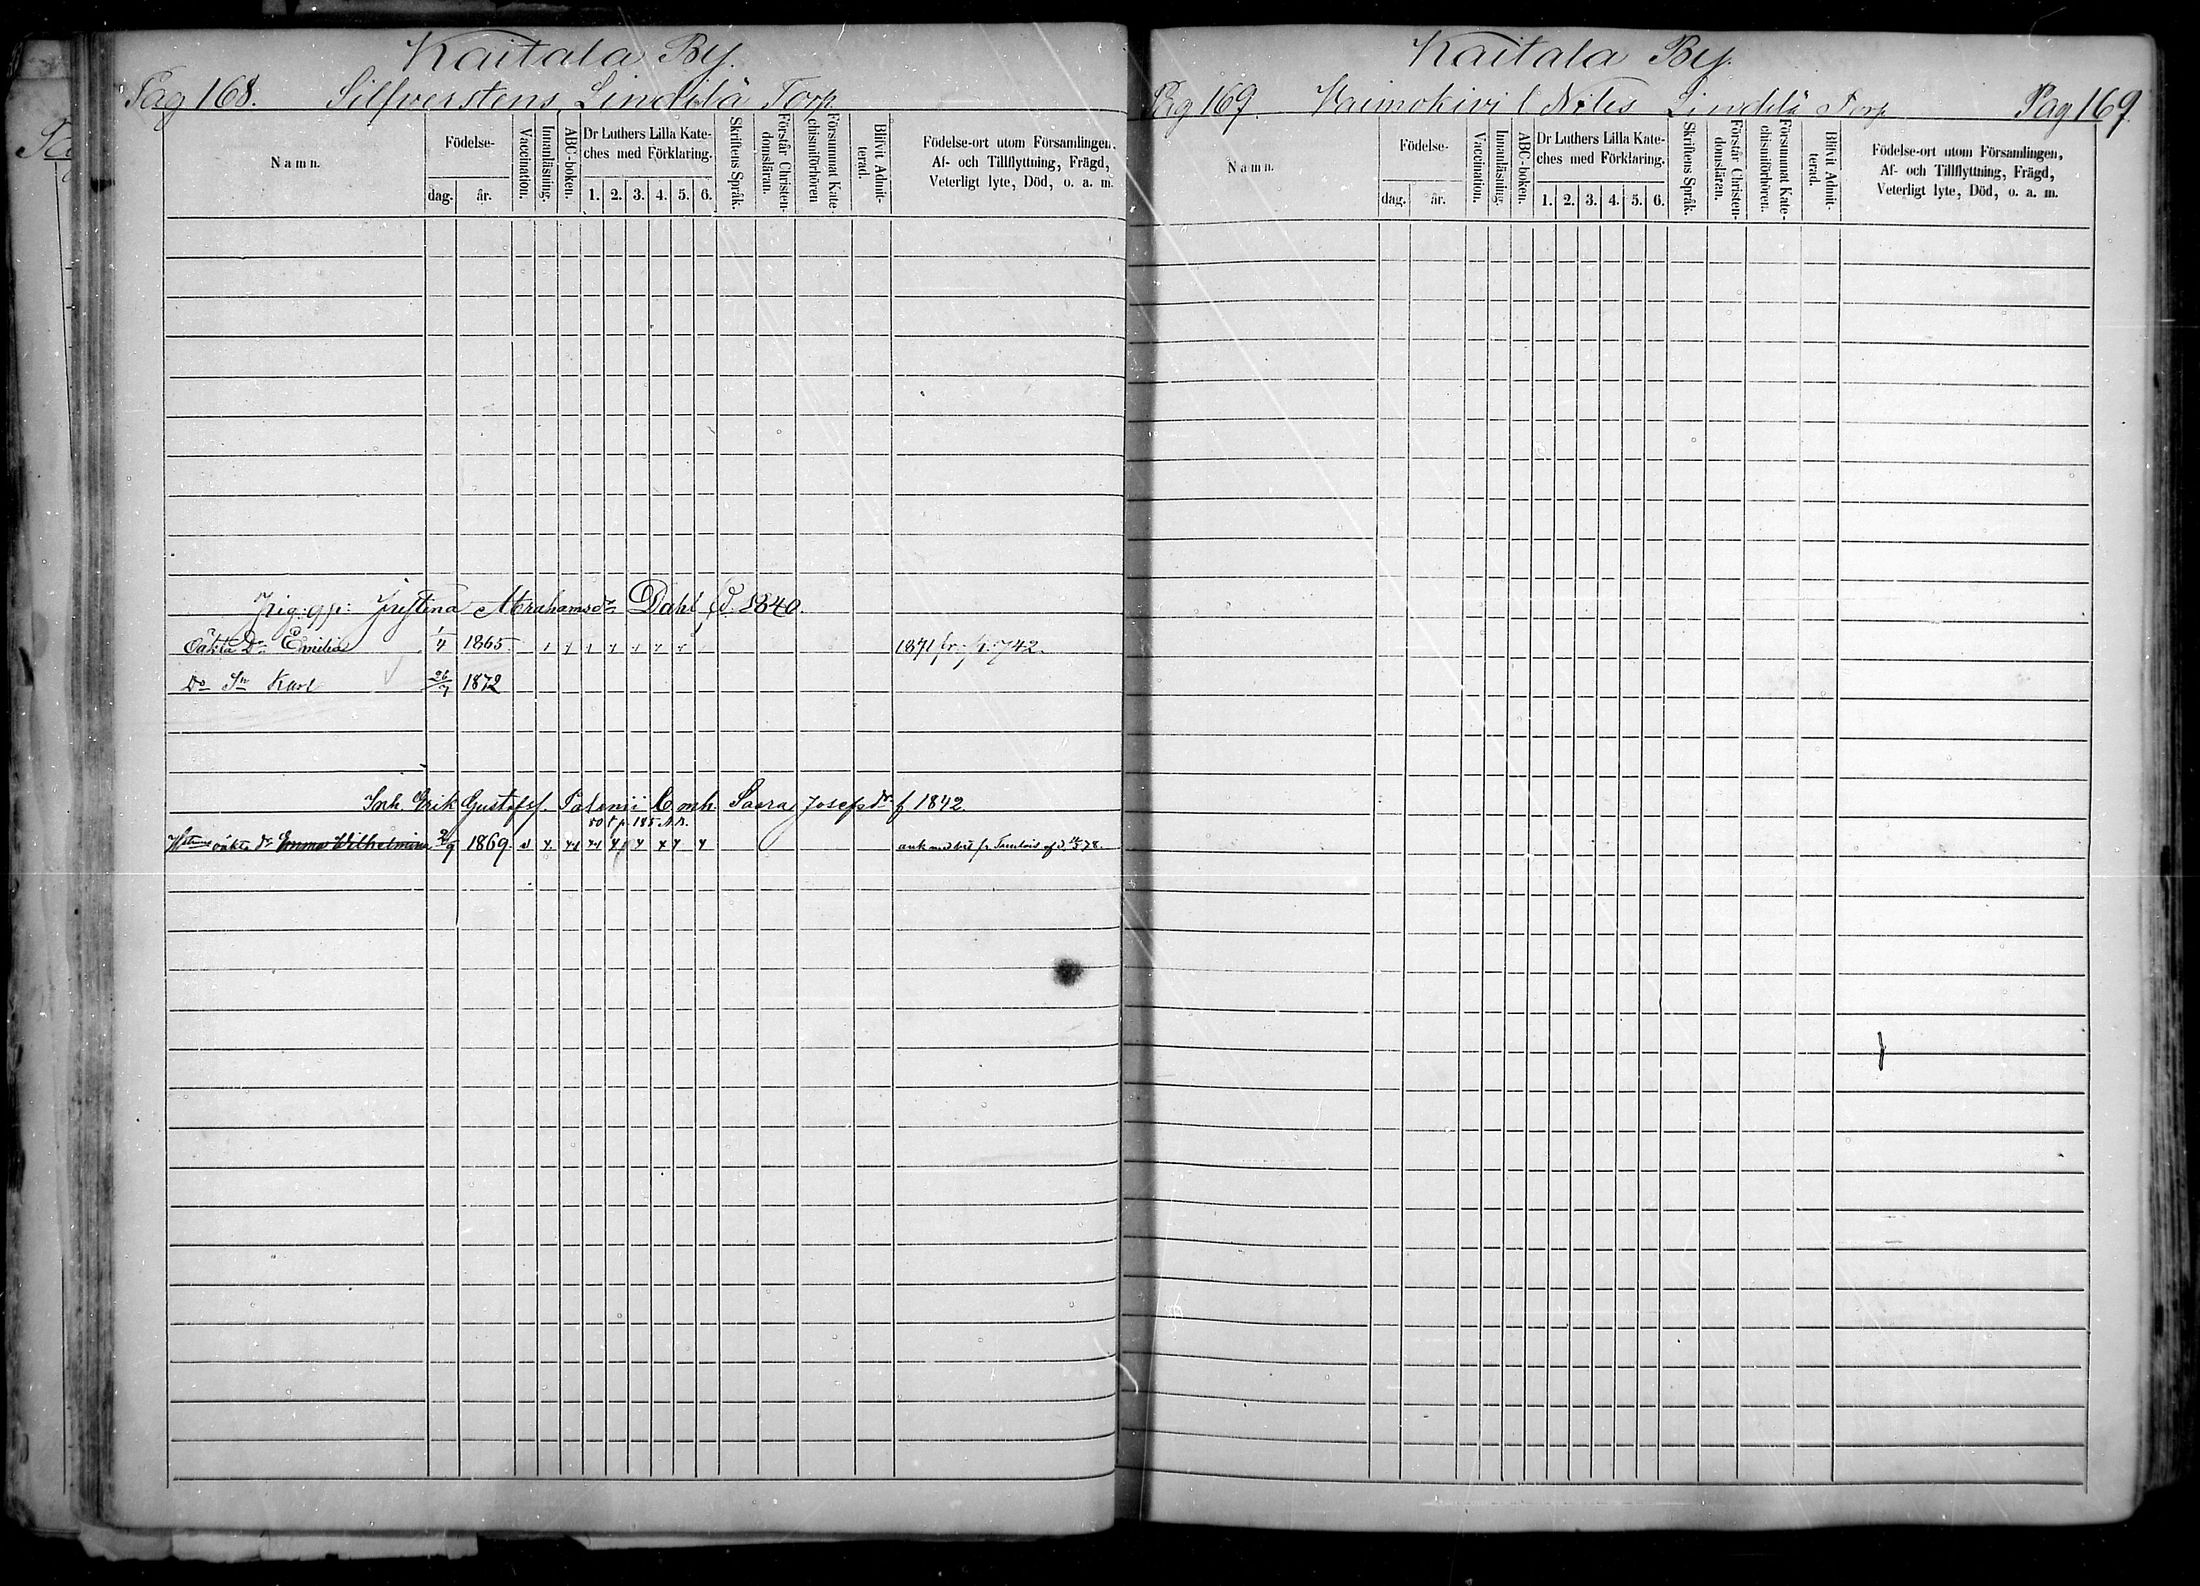 Kaitala By.
Pag 168. Silfverstens, Lindilä Torp.
Namn.
Födelse-
dag. år.
Vaccination.
Innanläsning.
ABC-boken.
Dr Luthers Lilla Kate-
ches med Förklaring.
1. 2. 3. 4. 5. 6.
Skriftens Språk.
Förstår Christen-
domsläran.
Försummat Kate-
chismiförhören
Blifvit Admit-
terad.
Födelse-ort utom Församlingen,
Af- och Tillflyttning, Frägd,
Veterligt lyte, Död, o. a. m.
Justina Abrahamsdr Dahl f. 1840.
Oäkta Dr Emilia 1/4 1865 1871 fr. p. 742.
Do Sn Karl 26/7 1872
Inh. Erik Gustafss. Salenii Enh. Saara Josefsdr f 1842
oäkta dr Emma Wilhelmina 2/9 1869
Kaitala By.
Pag 169. Kaimokivi l. Niles Lindilä Torp Pag 169.
Namn.
Födelse-
dag. år.
Vaccination.
Innanläsning.
ABC-boken.
Dr Luthers Lilla Kate-
ches med Förklaring.
1. 2. 3. 4. 5. 6.
Skriftens Språk.
Förstår Christen-
domsläran.
Försummat Kate-
chismiförhören.
Blifvit Admit-
terad.
Födelse-ort utom Församlingen,
Af- och Tillflyttning, Frägd,
Veterligt lyte, Död, o. a. m.